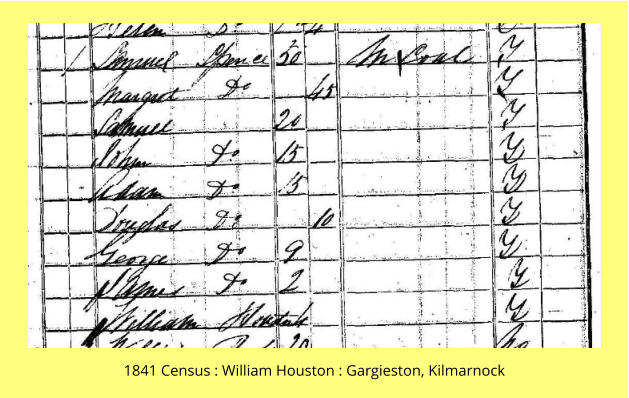 Do
1 Samuel Spence 50 M Coal Y
Margret Do 45 Y
Samuel 20 Y
John Do 15 Y
Adam Do 15 Y
Douglas Do 10 Y
George Do 9 Y
James Do 2 Y
William Y
20 No
1841 Census : William Houston : Gargieston, Kilmarnock